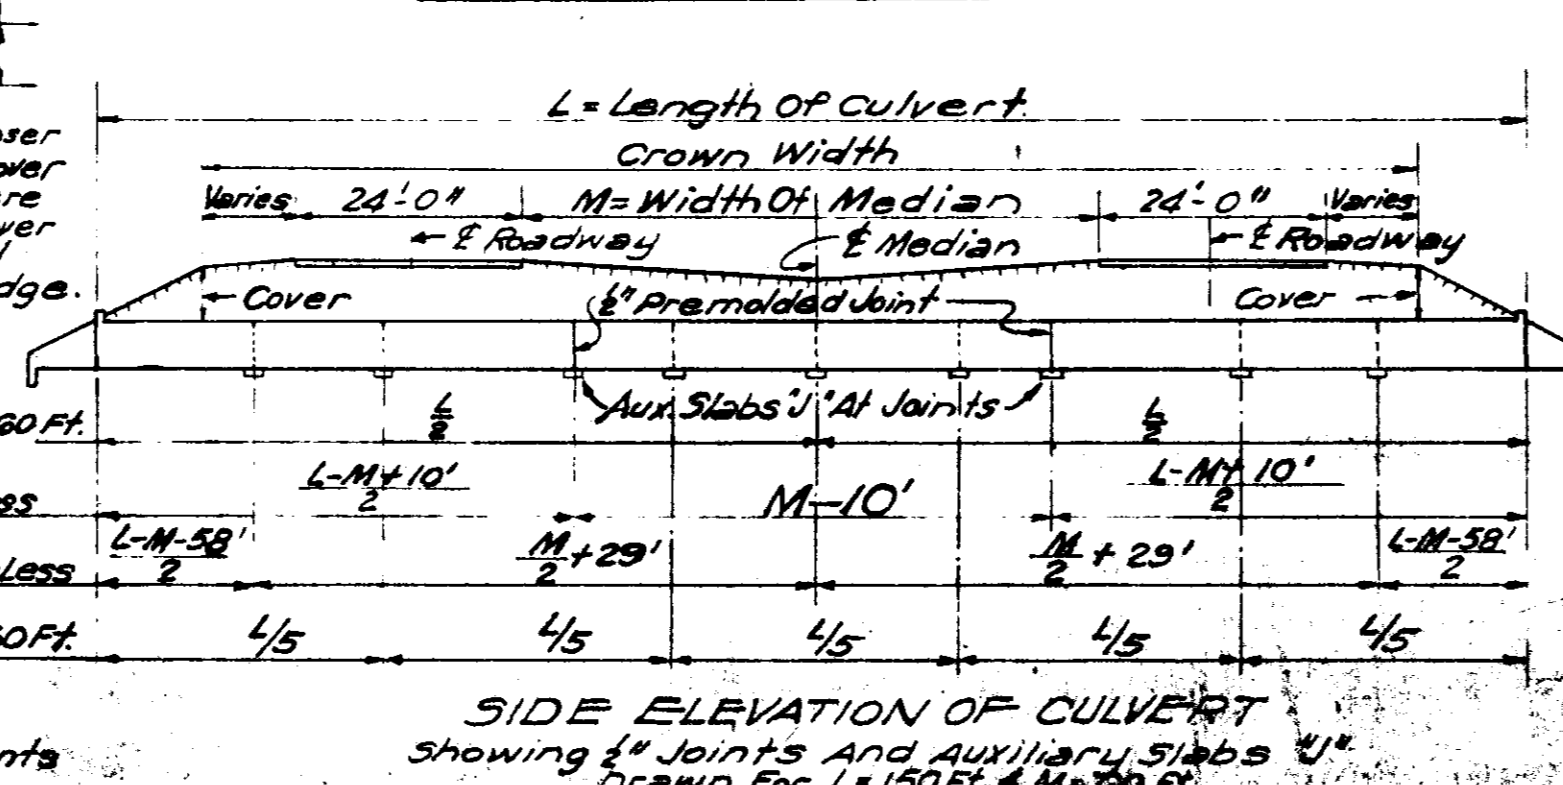 L = Length Of Culvert
Crown Width
Varies 24'-0" M = Width Of Median 24'-0" Varies
℄ Roadway ℄ Median ℄ Roadway
Cover ½" Premolded Joint Cover
Aux. Slabs "J" At Joints
60 Ft. L/2 L/2
L-M+10'/2 M-10' L-M+10'/2
Less L-M-58'/2 M/2 + 29' M/2 + 29' L-M-58'/2
L/5 L/5 L/5 L/5 L/5
SIDE ELEVATION OF CULVERT
Showing ½" Joints And Auxiliary Slabs "J"
Drawn For L = 150 Ft. & M=